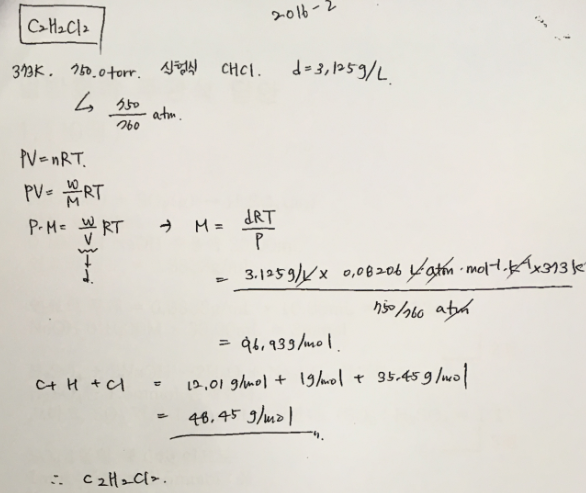 2016-2
C2H2Cl2
373K. 750.0torr. 실험식 CHCl. d=3,125g/L.
↳ 750/760 atm.
PV=nRT.
PV= w/M RT
P·M= w/V RT → M= dRT/P
↓
d.
= 3.125g/L x 0,08206 L·atm·mol-1·K-1 x373K
750/760 atm
= 96,93g/mol.
C+ H + Cl = 12,01 g/mol + 1g/mol + 35.45g/mol
= 48.45 g/mol
∴ C2H2Cl2.